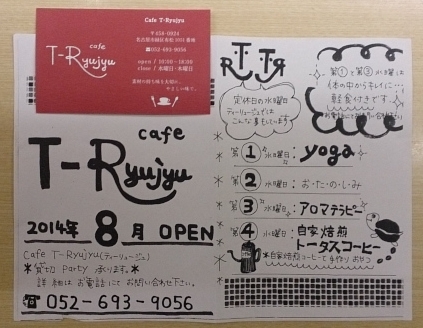 cafe
T-Ryujyu
Cafe T-Ryujyu
〒458-0924
☎052-693-9056
open / 10:00-18:00
close / 水曜日・木曜日
素材の持ち味を大切に、
やさしい味で。
cafe
T-Ryujyu
2014年 8月 OPEN
Cafe T-Ryujyu(ティーリュージュ)
*貸切 Party 承ります。
詳細はお電話にてお問い合わせ下さい。
☎ 052-693-9056
定休日の水曜日
ティーリュージュでは
こんな事もしています
第①と第③水曜は
体の中からキレイに…
軽食付きです
お電話にてお問い合わせ下さい
第①水曜日:yoga
第②水曜日:お・た・の・し・み
第③水曜日:アロマテラピー
第④水曜日:自家焙煎
トータスコーヒー
*自家焙煎コーヒーと手作りおやつ